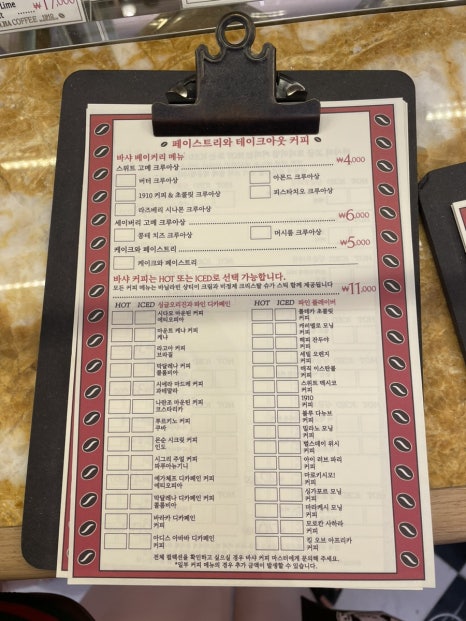 ₩17,000
COFFEE
페이스트리와 테이크아웃 커피
바샤 베이커리 메뉴
스위트 고메 크루아상 ₩4,000
버터 크루아상
아몬드 크루아상
1910 커피 & 초콜릿 크루아상
피스타치오 크루아상
라즈베리 시나몬 크루아상
세이버리 고메 크루아상 ₩6,000
콩테 치즈 크루아상
머시룸 크루아상
케이크와 페이스트리 ₩5,000
케이크와 페이스트리
바샤 커피는 HOT 또는 ICED로 선택 가능합니다.
모든 커피 메뉴는 바닐라빈 샹티이 크림과 비정제 크리스탈 슈가 스틱 함께 제공됩니다 ₩11,000
HOT ICED 싱글오리진과 파인 디카페인
시다모 마운틴 커피
에티오피아
마운트 케냐 커피
케냐
브라질
박달레나 커피
콜롬비아
시에라 마드레 커피
과테말라
나란조 마운틴 커피
코스타리카
투르키노 커피
쿠바
몬순 시크릿 커피
인도
시그리 주얼 커피
파푸아뉴기니
예가체프 디카페인 커피
에티오피아
박달레나 디카페인 커피
콜롬비아
바라카 디카페인
커피
아디스 아바바 디카페인
커피
HOT ICED 파인 플레이버
커피
캐러멜로 모닝
커피
커피
세빌 오렌지
커피
매직 이스탄불
커피
스위트 멕시코
커피
1910
커피
블루 다뉴브
커피
밀라노 모닝
커피
커피
아이 러브 파리
커피
커피
싱가포르 모닝
커피
마라케시 모닝
커피
모로칸 사하라
커피
킹 오브 아프리카
커피
전체 컬렉션을 확인하고 싶으실 경우 바샤 커피 마스터에게 문의해 주세요.
*일부 커피 메뉴의 경우 추가 금액이 발생할 수 있습니다.